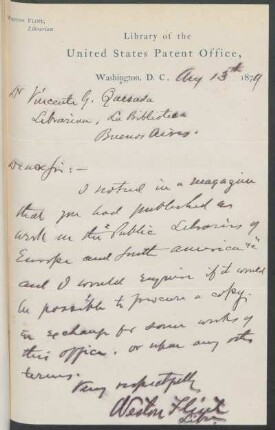 Weston Flint,
Librarian
Library of the
United States Patent Office,
Washington, D. C. Aug 15th 1879
Dr Vincente G. Quesada
Librarian, La Biblioteca
Buenos Aires.
Dear Sir:—
I noticed in a magazine
that you had published a
work on the "Public Libraries of
Europe and South America"
and I would enquire if it would
be possible to procure a copy,
in exchange for some works of
this office, or upon any other
terms.
Very respectfully
Weston Flint
Libn